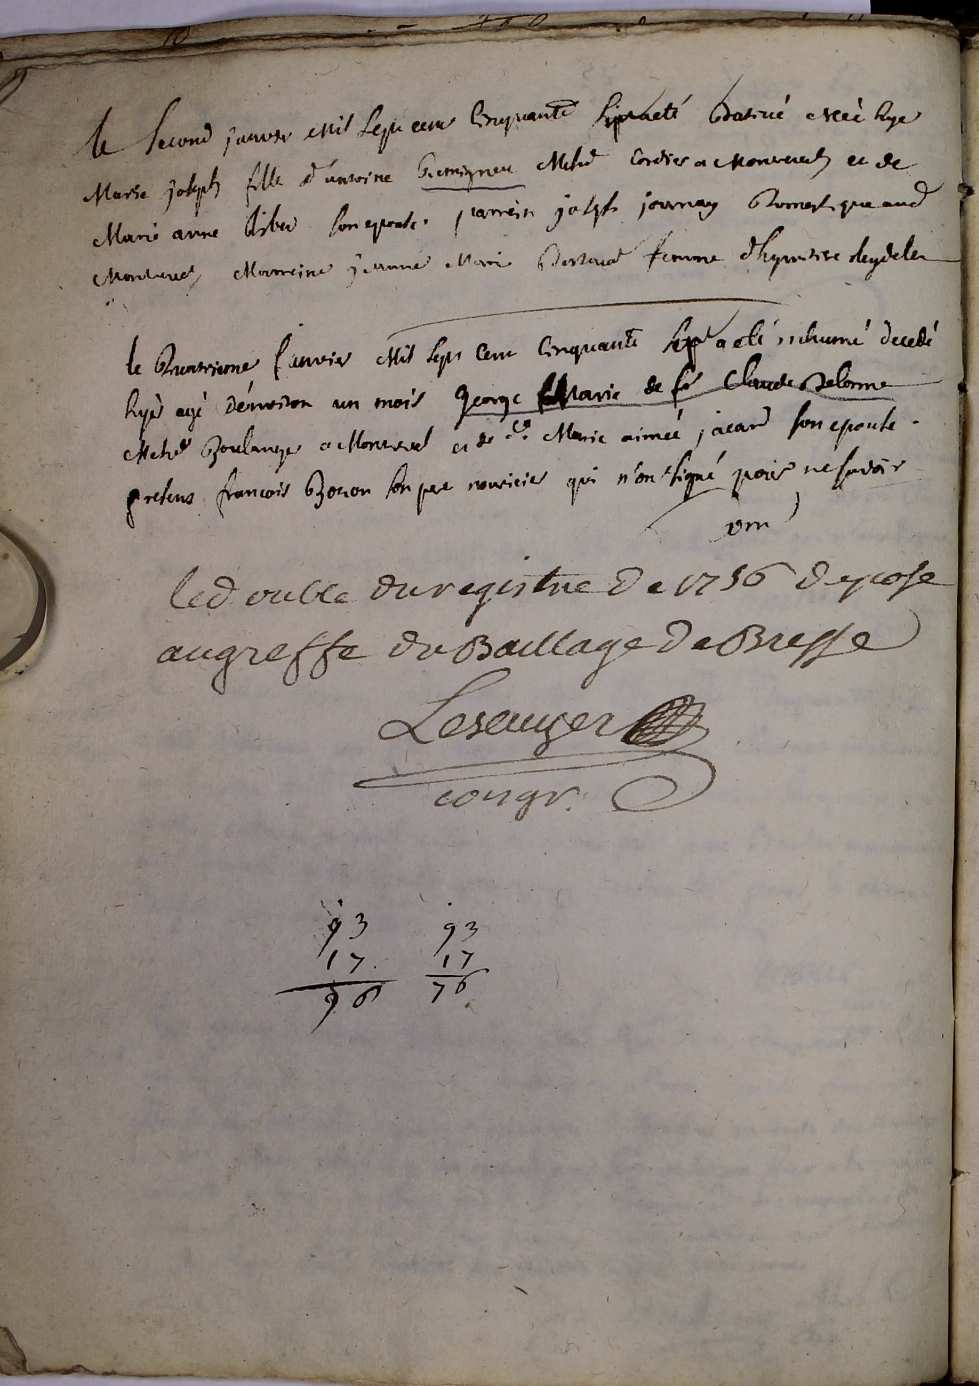 le second janvier mil sept cent cinquante sept a eté batisé née hyer
Marie joseph fille d'antoine mchd cordier a Montrevel et de
Marie anne son epouse. parrein joseph journay domestique aud
Montrevel Marreine jeanne Marie femme
le janvier mil sept cent cinquante sept a eté inhumé decedé
hyer agé d'environ un mois george Marie de sr Claude Delorme
Mchd Boulanger a Montrevel et de de Marie aimée jacard son epouse.
presens françois Bozon son pere nouricier qui n'on signé pour ne savoir
le double du registre de 1756 depose
au greffe du Baillage de Bresse
93 93
17 17
96 76